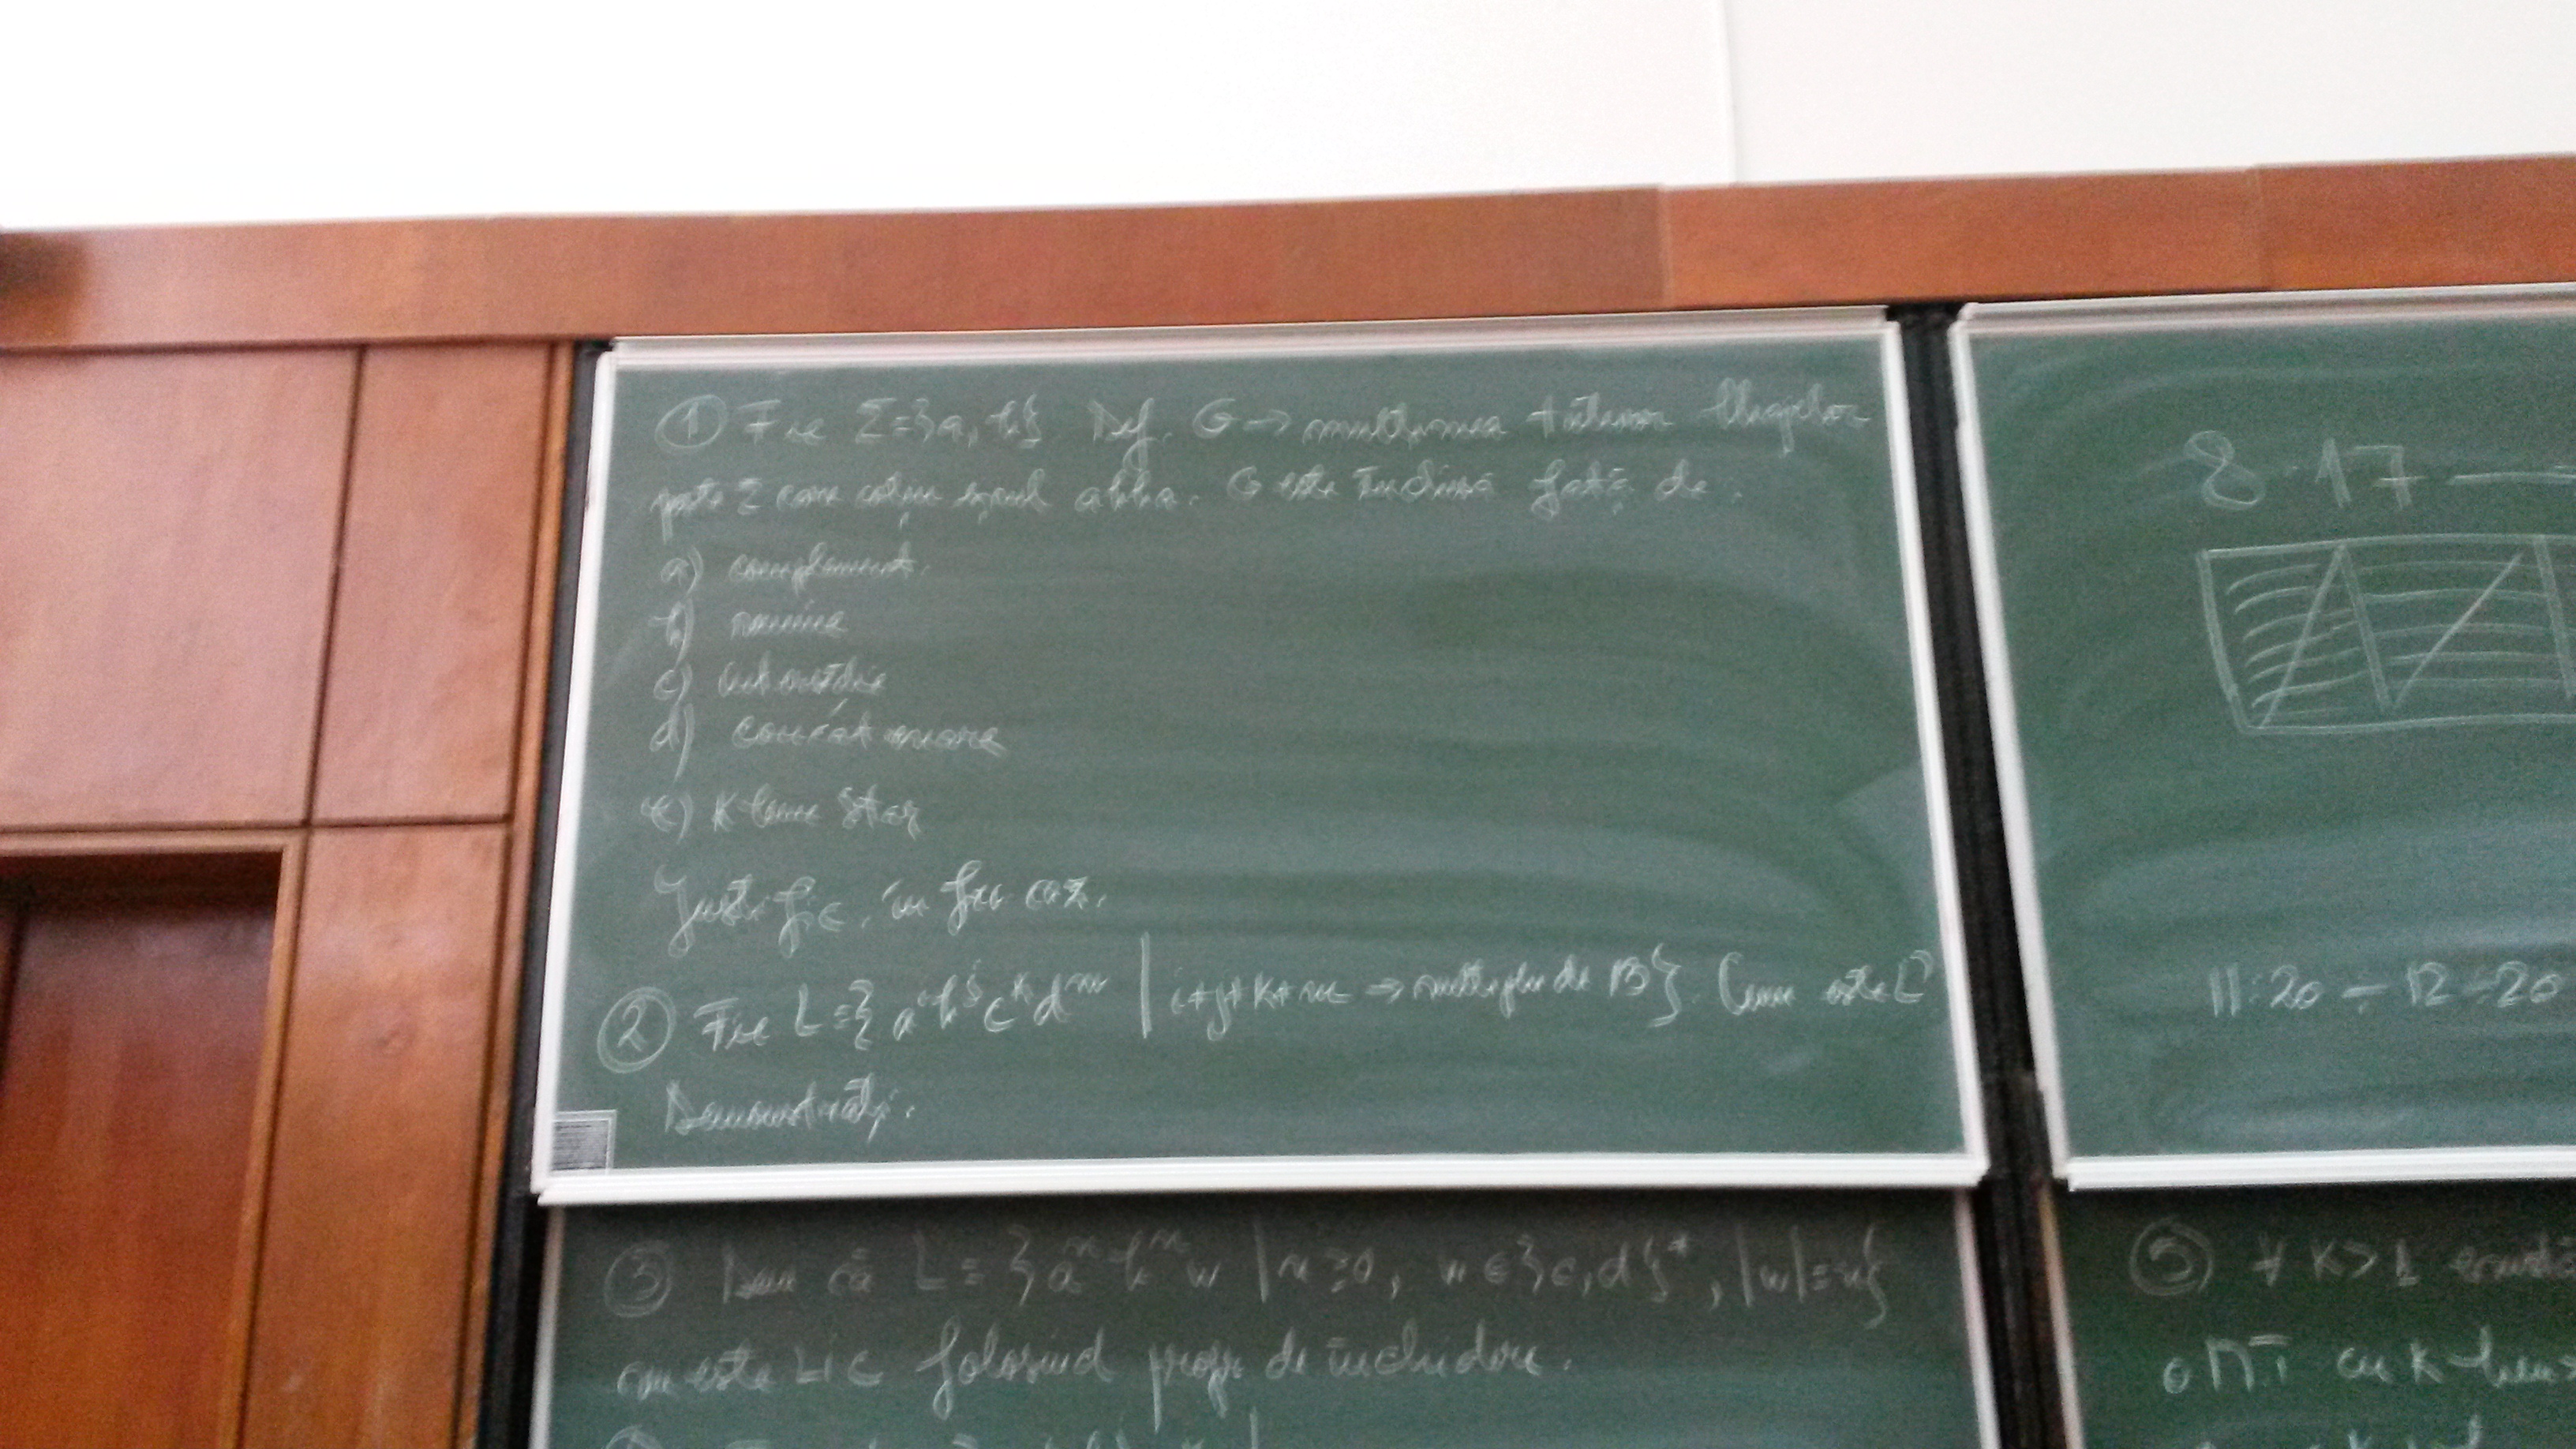 ① Fie Σ={a, b} Def. G → mulțimea tuturor lbajelor
peste Σ care conțin șirul abba. G este închisă față de:
a) complement.
b) reuniune
c) intersecție
d) concatenare
e) Kleene star
Justific. în fiec. caz.
② Fie L={aⁱbʲcᵏdᵐ | i+j+k+m → multiplu de 13}. Cum este L?
Demonstrați.
③ Dem că L = {aⁿbⁿw | n≥0, w∈{c,d}*, |w|=n}
nu este LIC folosind propr de închidere.
8.17 —
11:20 ÷ 12:20
⑤ ∀ K>1 există
o MT cu K